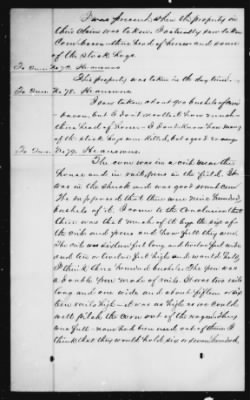 I was present when the property in
this claim was taken. I actually saw taken
Corn, bacon, three head of horses and some
of the stock hogs.
To Ques. No 72. He answers
This property was taken in the day time.
To Ques. No 78. He answers
I saw taken about 900 bushels of corn
bacon, but I don't recollect how much
three head of horses. I don't know how many
of the stock hogs were killed, but eyes
To Ques. No 79. He answers.
The corn was in a crib near the
house and in rail pens in the field. It
was in the shuck and was good sound corn
He supposed that there were nine hundred
bushels of it. I came to the conclusion that
there was that much of it by the size of
the crib and pens and how full they were.
The crib was sixteen feet long and twelve feet wide
and ten or twelve feet high and would hold
I think three hundred bushels. The pen was
a double pen made of rails. It was two rails
long and one wide and about fifteen or six
teen rails high - it was as high as we could
well pitch the corn out of the wagon. They
were full - none had been used out of them. I
think that they would hold six or seven hundred